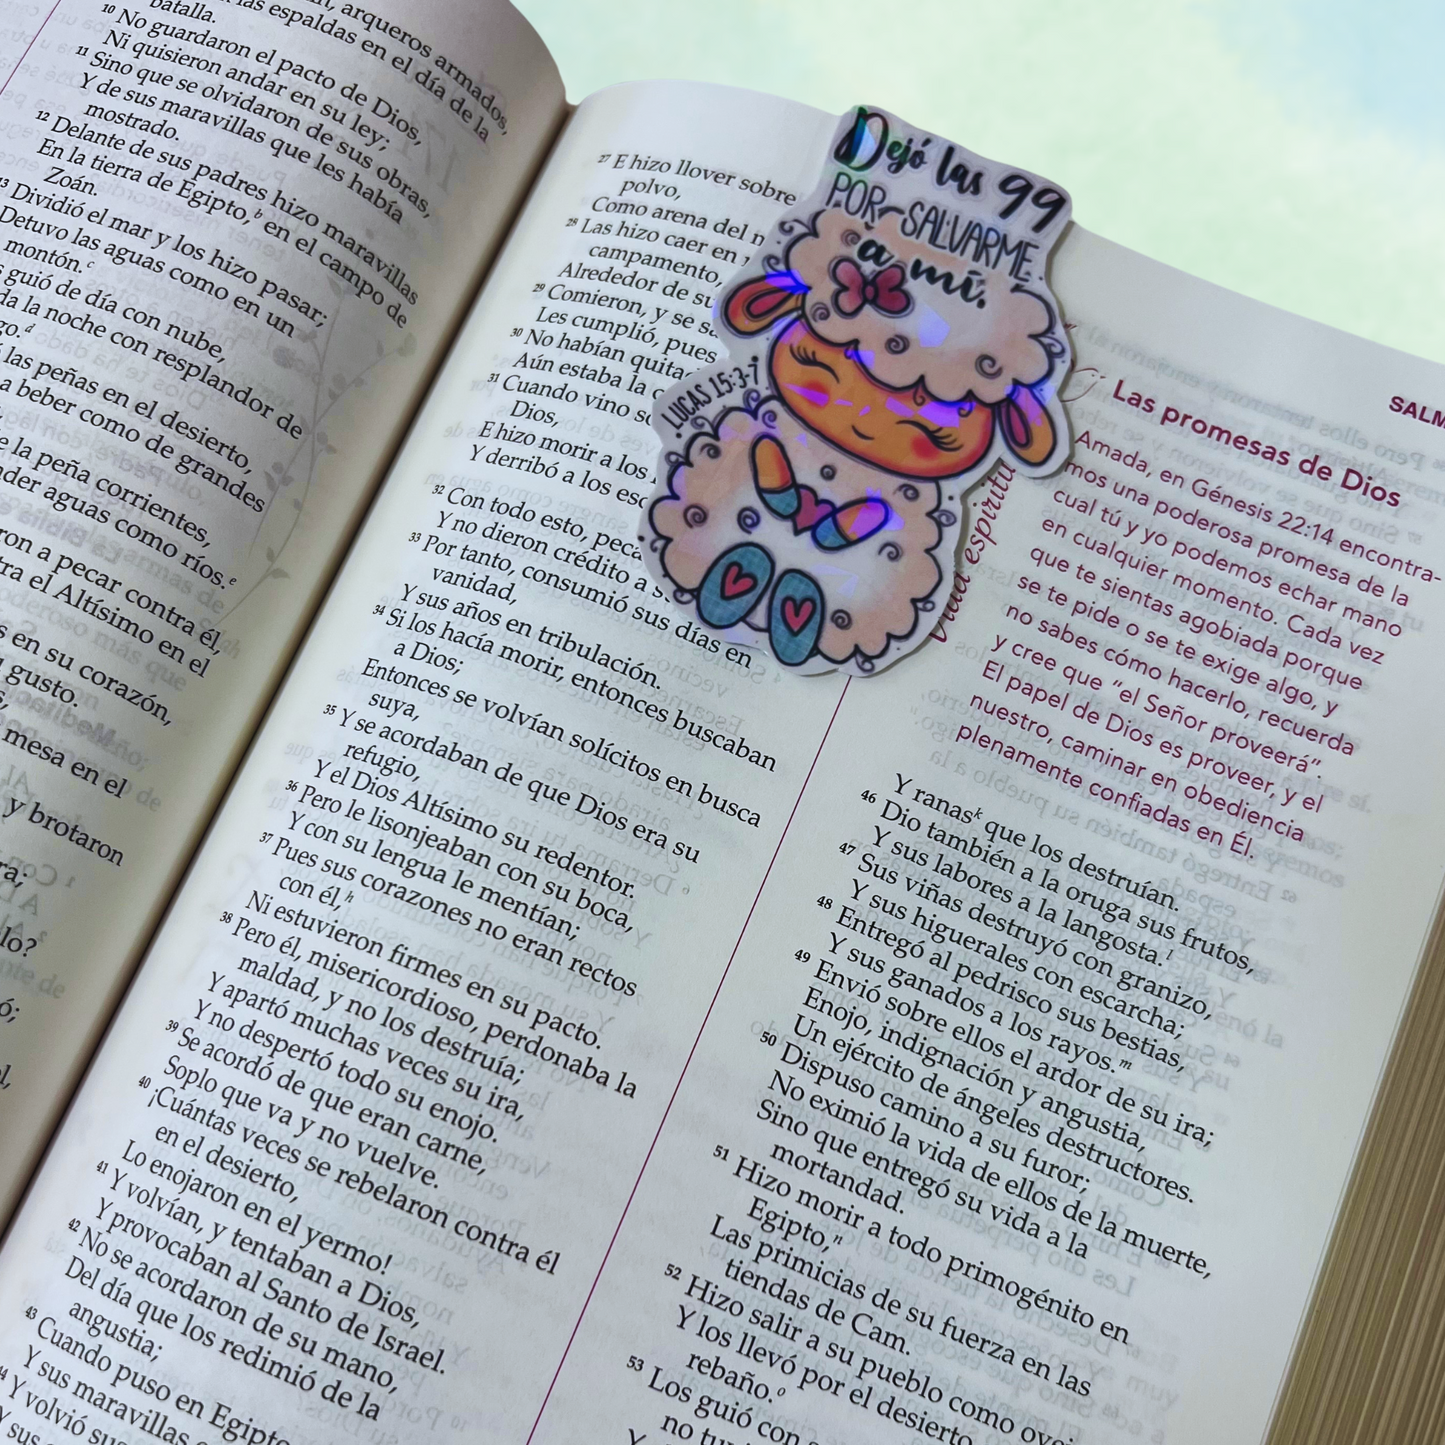 arqueros armados,
las espaldas en el día de la
batalla.
10 No guardaron el pacto de Dios,
Ni quisieron andar en su ley;
11 Sino que se olvidaron de sus obras,
Y de sus maravillas que les había
mostrado.
12 Delante de sus padres hizo maravillas
En la tierra de Egipto,b en el campo de
Zoán.
13 Dividió el mar y los hizo pasar;
Detuvo las aguas como en un
montón.c
guió de día con nube,
la noche con resplandor de
d
las peñas en el desierto,
a beber como de grandes
la peña corrientes,
aguas como ríos.e
a pecar contra él,
el Altísimo en el
en su corazón,
gusto.
mesa en el
y brotaron
27 E hizo llover sobre
polvo,
Como arena del
28 Las hizo caer en
campamento,
Alrededor de
29 Comieron, y se
Les cumplió, pues
30 No habían
Aún estaba la
31 Cuando vino
Dios,
E hizo morir a los
Y derribó a los
32 Con todo esto,
Y no dieron crédito a
33 Por tanto, consumió sus días en
vanidad,
Y sus años en tribulación.
34 Si los hacía morir, entonces buscaban
a Dios;
Entonces se volvían solícitos en busca
suya,
35 Y se acordaban de que Dios era su
refugio,
Y el Dios Altísimo su redentor.
36 Pero le lisonjeaban con su boca,
Y con su lengua le mentían;
37 Pues sus corazones no eran rectos
con él,h
Ni estuvieron firmes en su pacto.
38 Pero él, misericordioso, perdonaba la
maldad, y no los destruía;
Y apartó muchas veces su ira,
Y no despertó todo su enojo.
39 Se acordó de que eran carne,
Soplo que va y no vuelve.
40 ¡Cuántas veces se rebelaron contra él
en el desierto,
Lo enojaron en el yermo!
41 Y volvían, y tentaban a Dios,
Y provocaban al Santo de Israel.
42 No se acordaron de su mano,
Del día que los redimió de la
angustia;
43 Cuando puso en Egipto
Y sus maravillas
44 Y volvió
Dejó las 99
POR SALVARME
a mí.
LUCAS 15:3-7
Vida
Las promesas de Dios
Amada, en Génesis 22:14 encontra-
mos una poderosa promesa de la
cual tú y yo podemos echar mano
en cualquier momento. Cada vez
que te sientas agobiada porque
se te pide o se te exige algo, y
no sabes cómo hacerlo, recuerda
y cree que "el Señor proveerá".
El papel de Dios es proveer, y el
nuestro, caminar en obediencia
plenamente confiadas en Él.
Y ranask que los destruían.
46 Dio también a la oruga sus frutos,
Y sus labores a la langosta.l
47 Sus viñas destruyó con granizo,
Y sus higuerales con escarcha;
48 Entregó al pedrisco sus bestias,
Y sus ganados a los rayos.m
49 Envió sobre ellos el ardor de su ira;
Enojo, indignación y angustia,
Un ejército de ángeles destructores.
50 Dispuso camino a su furor;
No eximió la vida de ellos de la muerte,
Sino que entregó su vida a la
mortandad.
51 Hizo morir a todo primogénito en
Egipto,n
Las primicias de su fuerza en las
tiendas de Cam.
52 Hizo salir a su pueblo como
Y los llevó por el desierto
rebaño.o
53 Los guió con
no